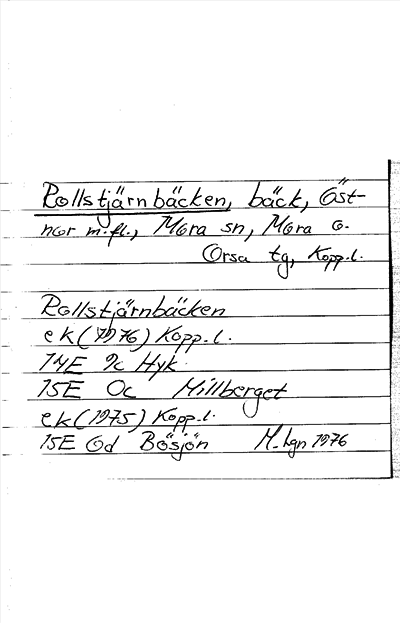 Rollstjärnbäcken, bäck, Öst-
nor m.fl., Mora sn, Mora o.
Orsa tg, Kopp.l.
Rollstjärnbäcken
ek (1976) Kopp.l.
14E 9c Hyk
15E 0c Millberget
ek (1975) Kopp.l.
15E 0d Bösjön M-hgn 1976